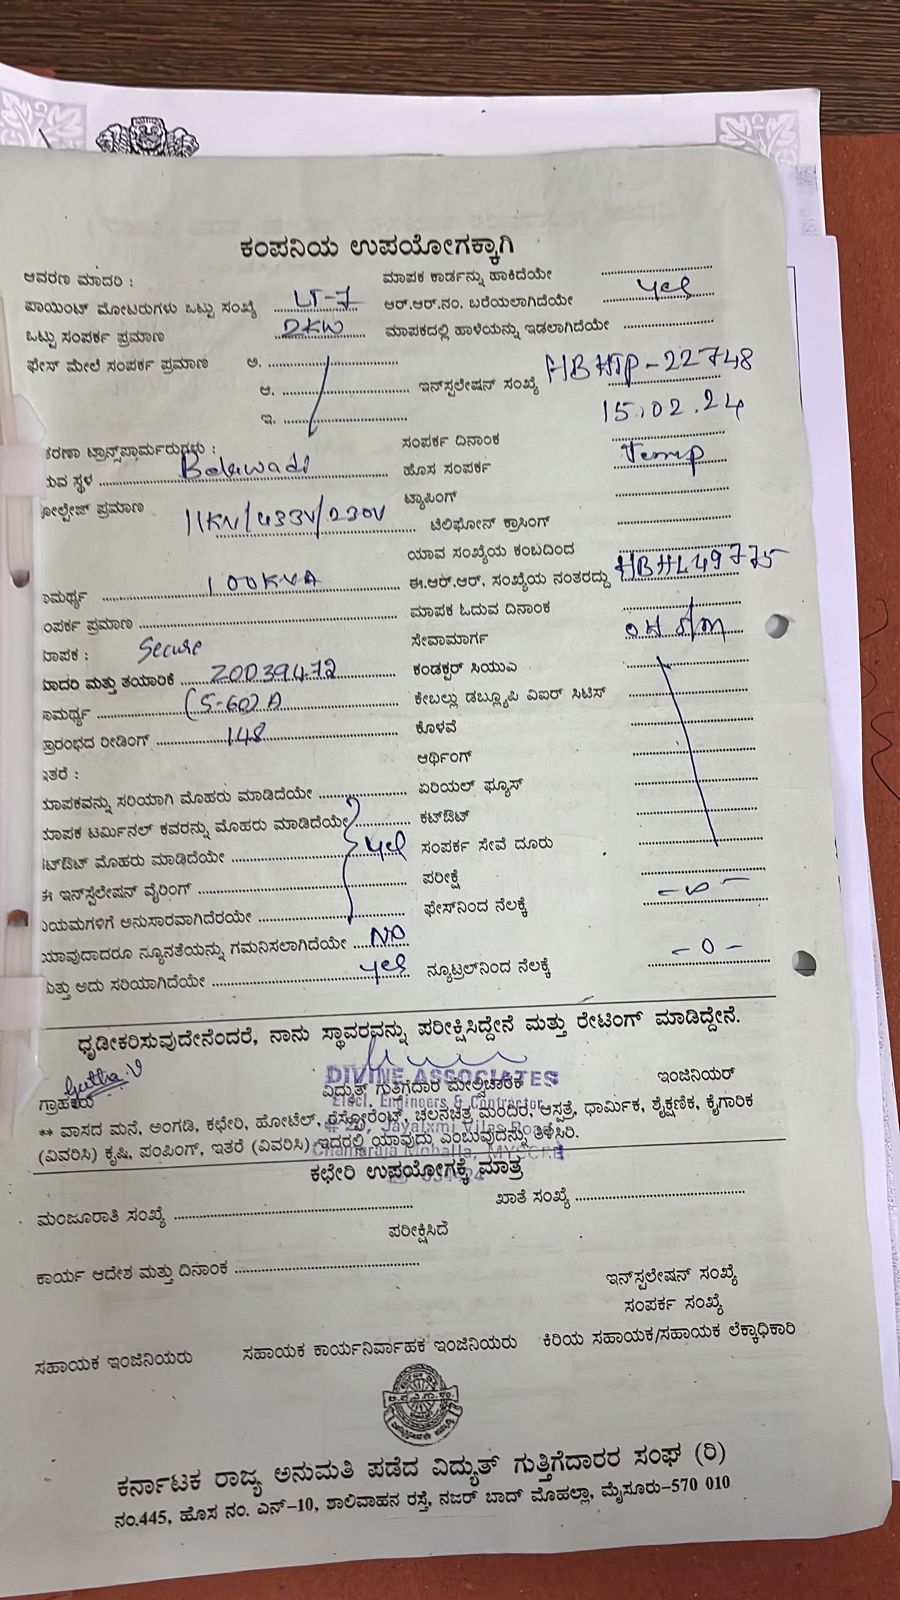 ಕಂಪನಿಯ ಉಪಯೋಗಕ್ಕಾಗಿ
ಆವರಣ ಮಾದರಿ : ಮಾಪಕ ಕಾರ್ಡನ್ನು ಹಾಕಿದೆಯೇ
ಪಾಯಿಂಟ್ ಮೋಟರುಗಳು ಒಟ್ಟು ಸಂಖ್ಯೆ LT-7 ಆರ್.ಆರ್.ನಂ. ಬರೆಯಲಾಗಿದೆಯೇ yes
ಒಟ್ಟು ಸಂಪರ್ಕ ಪ್ರಮಾಣ 2KW ಮಾಪಕದಲ್ಲಿ ಹಾಳೆಯನ್ನು ಇಡಲಾಗಿದೆಯೇ
ಫೇಸ್ ಮೇಲೆ ಸಂಪರ್ಕ ಪ್ರಮಾಣ ಅ.
ಆ. ಇನ್‌ಸ್ಪಲೇಷನ್ ಸಂಖ್ಯೆ HBHTP-22748
ಇ. 15.02.24
ಕರಣಾ ಟ್ರಾನ್ಸ್‌ಫಾರ್ಮರುಗಳು : ಸಂಪರ್ಕ ದಿನಾಂಕ
ುವ ಸ್ಥಳ Belawadi ಹೊಸ ಸಂಪರ್ಕ Temp
ೋಲ್ಟೇಜ್ ಪ್ರಮಾಣ 11KV/433V/230V ಟ್ಯಾಪಿಂಗ್
ಟೆಲಿಫೋನ್ ಕ್ರಾಸಿಂಗ್
ಯಾವ ಸಂಖ್ಯೆಯ ಕಂಬದಿಂದ
ಾಮರ್ಥ್ಯ 100KVA ಈ.ಆರ್.ಆರ್. ಸಂಖ್ಯೆಯ ನಂತರದ್ದು HBHL49775
ಂಪರ್ಕ ಪ್ರಮಾಣ ಮಾಪಕ ಓದುವ ದಿನಾಂಕ
ಾಪಕ : Secure ಸೇವಾಮಾರ್ಗ OH S/M
ಾದರಿ ಮತ್ತು ತಯಾರಿಕೆ Z0039472 ಕಂಡಕ್ಟರ್ ಸಿಯುಎ
ಾಮರ್ಥ್ಯ (5-60)A ಕೇಬಲ್ಲು ಡಬ್ಲ್ಯೂಪಿ ವಿಐರ್ ಸಿಟಿಸ್
್ರಾರಂಭದ ರೀಡಿಂಗ್ 148 ಕೊಳವೆ
ಇತರೆ : ಆರ್ಥಿಂಗ್
ಾಪಕವನ್ನು ಸರಿಯಾಗಿ ಮೊಹರು ಮಾಡಿದೆಯೇ ಏರಿಯಲ್ ಫ್ಯೂಸ್
ಾಪಕ ಟರ್ಮಿನಲ್ ಕವರನ್ನು ಮೊಹರು ಮಾಡಿದೆಯೇ ಕಟ್‌ಔಟ್
ಟ್‌ಔಟ್ ಮೊಹರು ಮಾಡಿದೆಯೇ yes ಸಂಪರ್ಕ ಸೇವೆ ದೂರು
ಈ ಇನ್‌ಸ್ಪೆಲೇಷನ್ ವೈರಿಂಗ್ ಪರೀಕ್ಷೆ
ಿಯಮಗಳಿಗೆ ಅನುಸಾರವಾಗಿದೆರಯೇ ಫೇಸ್‌ನಿಂದ ನೆಲಕ್ಕೆ -∞-
ಯಾವುದಾದರೂ ನ್ಯೂನತೆಯನ್ನು ಗಮನಿಸಲಾಗಿದೆಯೇ NO
ಮತ್ತು ಅದು ಸರಿಯಾಗಿದೆಯೇ yes ನ್ಯೂಟ್ರಲ್‌ನಿಂದ ನೆಲಕ್ಕೆ -0-
ಧೃಡೀಕರಿಸುವುದೇನೆಂದರೆ, ನಾನು ಸ್ಥಾವರವನ್ನು ಪರೀಕ್ಷಿಸಿದ್ದೇನೆ ಮತ್ತು ರೇಟಿಂಗ್ ಮಾಡಿದ್ದೇನೆ.
DIVINE ASSOCIATES
ಗ್ರಾಹಕರು ವಿದ್ಯುತ್ ಗುತ್ತಿಗೆದಾರ ಮೇಲ್ವಿಚಾರಿಕ ಇಂಜಿನಿಯರ್
Elect. Engineers & Contractor
** ವಾಸದ ಮನೆ, ಅಂಗಡಿ, ಕಛೇರಿ, ಹೋಟೆಲ್, ರೆಸ್ಟೋರೆಂಟ್, ಚಲನಚಿತ್ರ ಮಂದಿರ, ಆಸ್ಪತ್ರೆ, ಧಾರ್ಮಿಕ, ಶೈಕ್ಷಣಿಕ, ಕೈಗಾರಿಕ
(ವಿವರಿಸಿ) ಕೃಷಿ, ಪಂಪಿಂಗ್, ಇತರೆ (ವಿವರಿಸಿ) ಇದರಲ್ಲಿ ಯಾವುದು ಎಂಬುವುದನ್ನು ತಿಳಿಸಿರಿ.
ಕಛೇರಿ ಉಪಯೋಗಕ್ಕೆ ಮಾತ್ರ
ಮಂಜೂರಾತಿ ಸಂಖ್ಯೆ ಖಾತೆ ಸಂಖ್ಯೆ
ಪರೀಕ್ಷಿಸಿದೆ
ಕಾರ್ಯ ಆದೇಶ ಮತ್ತು ದಿನಾಂಕ
ಇನ್‌ಸ್ಪಲೇಷನ್ ಸಂಖ್ಯೆ
ಸಂಪರ್ಕ ಸಂಖ್ಯೆ
ಸಹಾಯಕ ಇಂಜಿನಿಯರು ಸಹಾಯಕ ಕಾರ್ಯನಿರ್ವಾಹಕ ಇಂಜಿನಿಯರು ಕಿರಿಯ ಸಹಾಯಕ/ಸಹಾಯಕ ಲೆಕ್ಕಾಧಿಕಾರಿ
ಕರ್ನಾಟಕ ರಾಜ್ಯ ಅನುಮತಿ ಪಡೆದ ವಿದ್ಯುತ್ ಗುತ್ತಿಗೆದಾರರ ಸಂಘ (ರಿ)
ನಂ.445, ಹೊಸ ನಂ. ಎನ್-10, ಶಾಲಿವಾಹನ ರಸ್ತೆ, ನಜರ್ ಬಾದ್ ಮೊಹಲ್ಲಾ, ಮೈಸೂರು-570 010